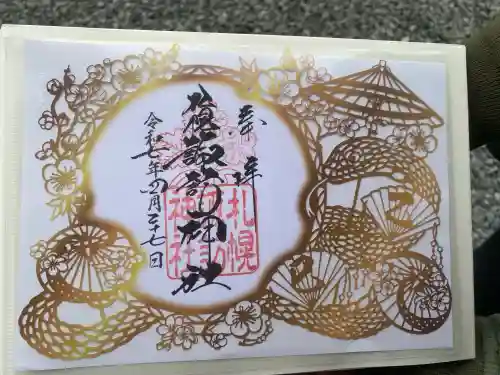 奉拝
札幌諏訪神社
令和七年四月二十七日
札幌
諏訪
神社